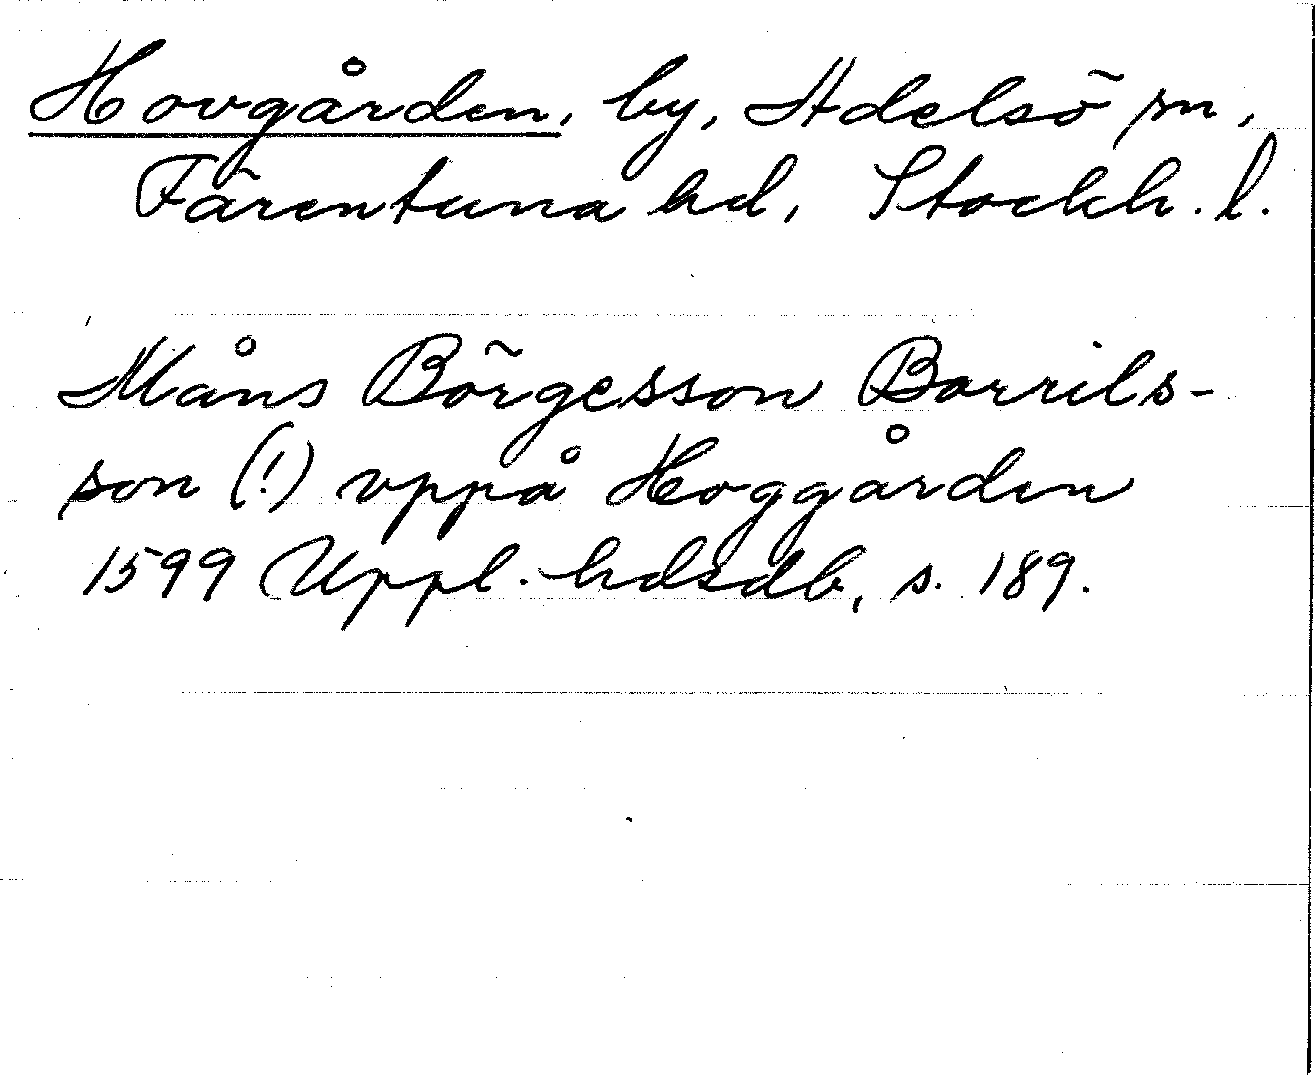 Hovgården, by, Adelsö sn,
Färentuna hd, Stockh. l.
Måns Börgesson Borrils-
son (!) vppå Hoggården
1599 Uppl. hdsdb, s. 189.